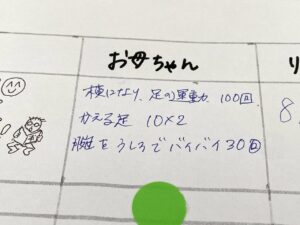 お母ちゃん
横になり、足の運動 100回
かえる足 10×2
腕をうしろでバイバイ30回
り
8